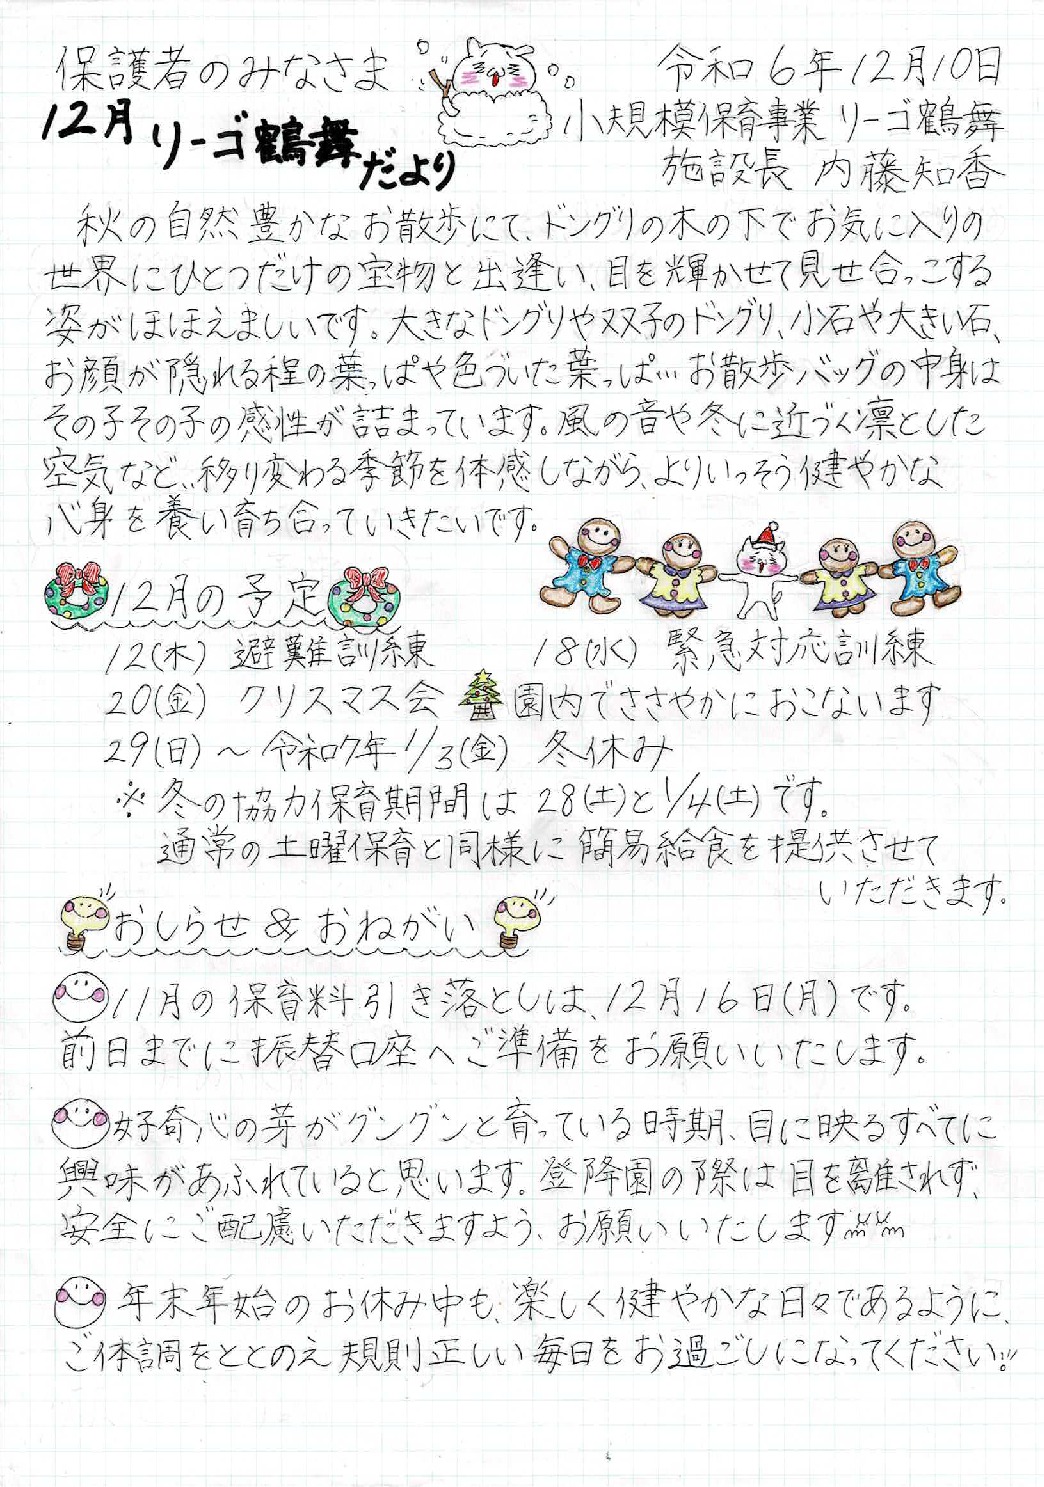 保護者のみなさま
令和6年12月10日
12月 リーゴ鶴舞だより
小規模保育事業 リーゴ鶴舞
施設長 内藤知香
秋の自然豊かなお散歩にて、ドングリの木の下でお気に入りの
世界にひとつだけの宝物と出逢い、目を輝かせて見せ合っこする
姿がほほえましいです。大きなドングリや双子のドングリ、小石や大きい石、
お顔が隠れる程の葉っぱや色づいた葉っぱ…お散歩バッグの中身は
その子その子の感性が詰まっています。風の音や冬に近づく凛とした
空気など、移り変わる季節を体感しながら、よりいっそう健やかな
心身を養い育ち合っていきたいです。
12月の予定
12(木) 避難訓練 18(水) 緊急対応訓練
20(金) クリスマス会 園内でささやかにおこないます
29(日)～令和7年1/3(金) 冬休み
※冬の協力保育期間は28(土)と1/4(土)です。
通常の土曜保育と同様に簡易給食を提供させて
いただきます。
おしらせ&おねがい
11月の保育料引き落としは、12月16日(月)です。
前日までに振替口座へご準備をお願いいたします。
好奇心の芽がグングンと育っている時期、目に映るすべてに
興味があふれていると思います。登降園の際は目を離されず、
安全にご配慮いただきますよう、お願いいたしますm(__)m
年末年始のお休み中も、楽しく健やかな日々であるように、
ご体調をととのえ規則正しい毎日をお過ごしになってください!!